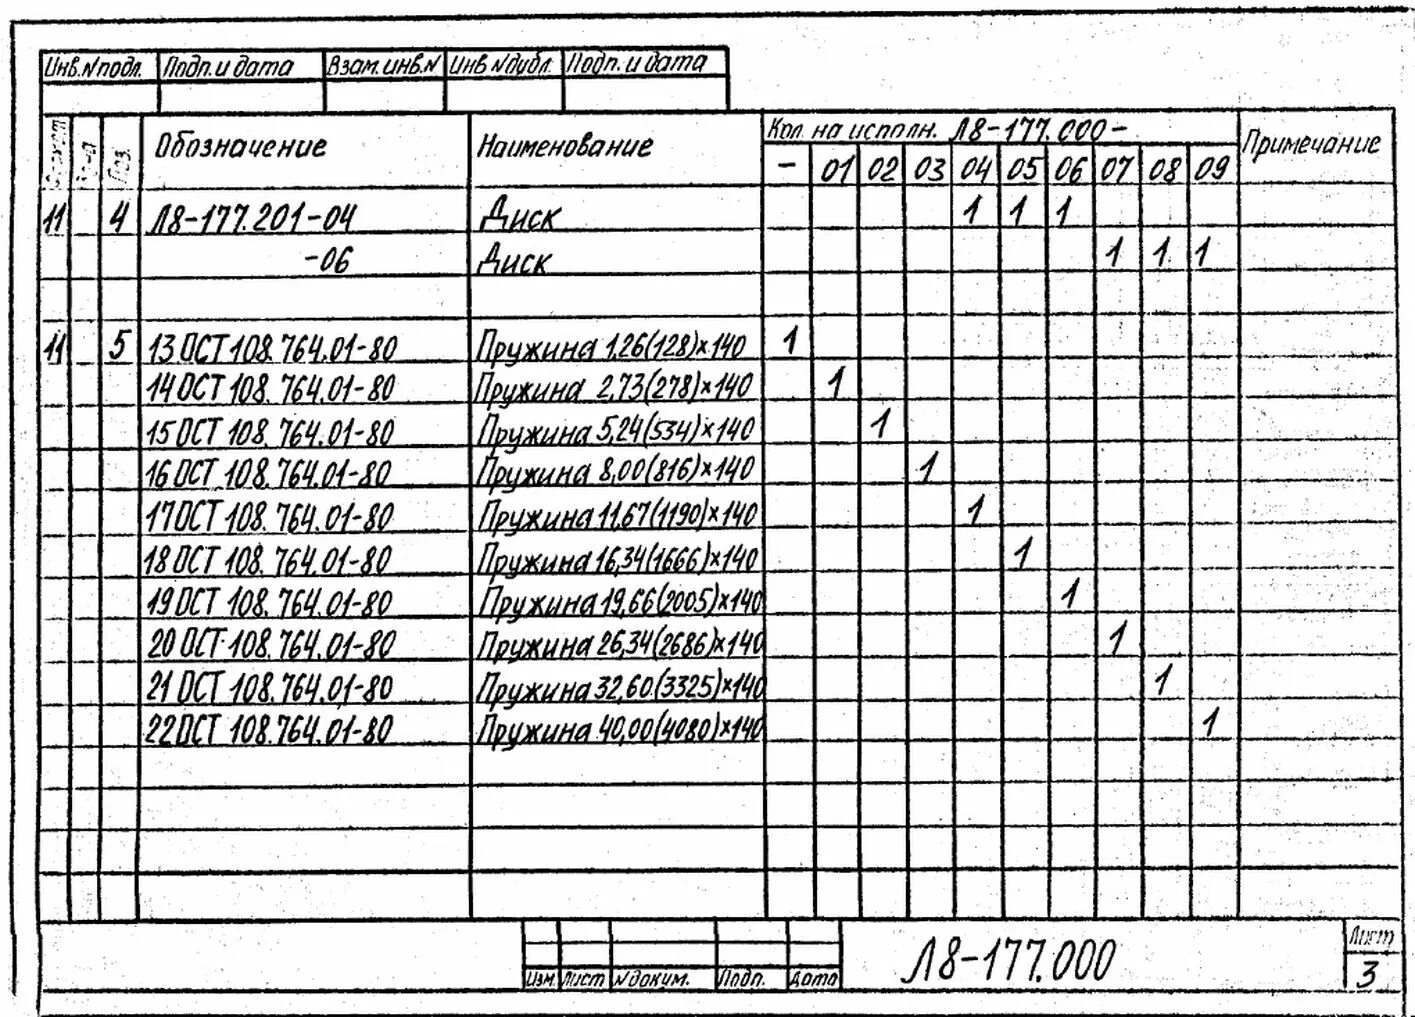 Инв.№подл. Подп.и дата Взам.инв.№ Инв №дубл. Подп. и дата
Формат Поз. Обозначение Наименование Кол. на исполн. Л8-177.000- Примечание
- 01 02 03 04 05 06 07 08 09
11 4 Л8-177.201-04 Диск 1 1 1
-06 Диск 1 1 1
11 5 13 ОСТ 108.764.01-80 Пружина 1,26(128)×140 1
14 ОСТ 108.764.01-80 Пружина 2,73(278)×140 1
15 ОСТ 108.764.01-80 Пружина 5,24(534)×140 1
16 ОСТ 108.764.01-80 Пружина 8,00(816)×140 1
17 ОСТ 108.764.01-80 Пружина 11,67(1190)×140 1
18 ОСТ 108.764.01-80 Пружина 16,34(1666)×140 1
19 ОСТ 108.764.01-80 Пружина 19,66(2005)×140 1
20 ОСТ 108.764.01-80 Пружина 26,34(2686)×140 1
21 ОСТ 108.764.01-80 Пружина 32,60(3325)×140 1
22 ОСТ 108.764.01-80 Пружина 40,00(4080)×140 1
Изм. Лист №докум. Подп. Дата Л8-177.000 Лист
3